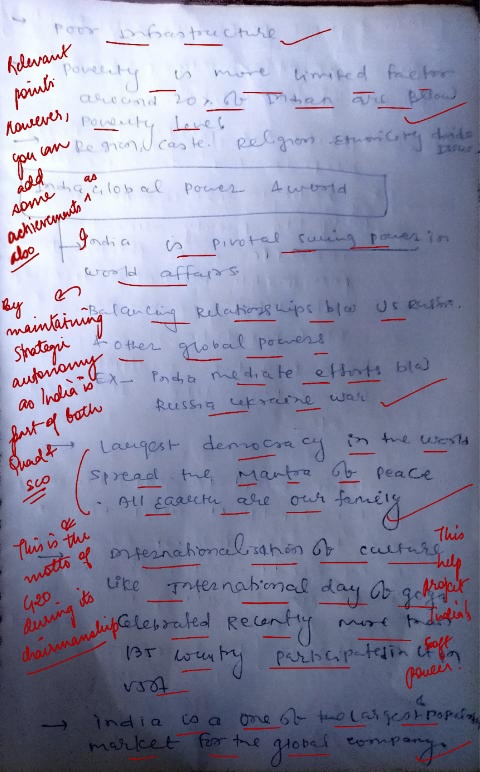 → Poor Infrastructure
Poverty is more limited factor
around 20% of Indian are Below
Poverty Level
→ Region, caste, Religion, Ethnicity divide
Issue.
India Global Power & World
→ India is pivotal swing power in
world affairs
→ Balancing Relationships b/w US Russia.
& other global powers
Ex- India mediate efforts b/w
Russia ukraine war
→ Largest democracy in the world
spread the Mantra of Peace
. All Earth are our family
→ Internationalisation of culture
Like International day of
Celebrated Recently more than
country participated in it in
→ India is a one of the largest
market for the global company.
Relevant
points
However,
you can
add
some as
achievements ^
also
By
maintaining
Strategic
autonomy
as India is
part of both
Quad &
SCO
This is the
motto of
G20
during its
chairmanship
This
help
project
India's
soft
power.